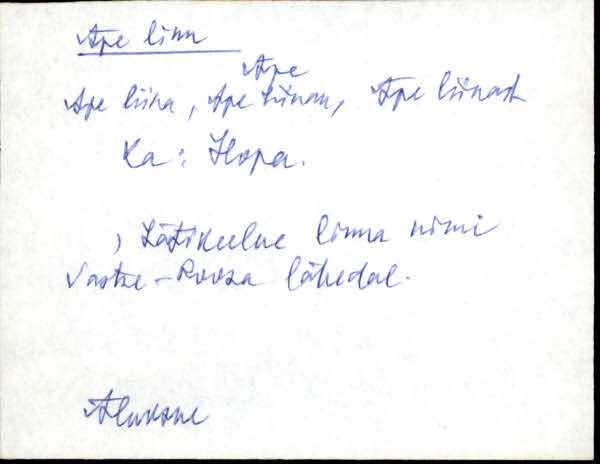 Ape linn
Ape
Ape liina, Ape liinan, Ape liinast
Ka: Hopa.
, Lätikeelne linna nimi
Vastse-Roosa lähedal.